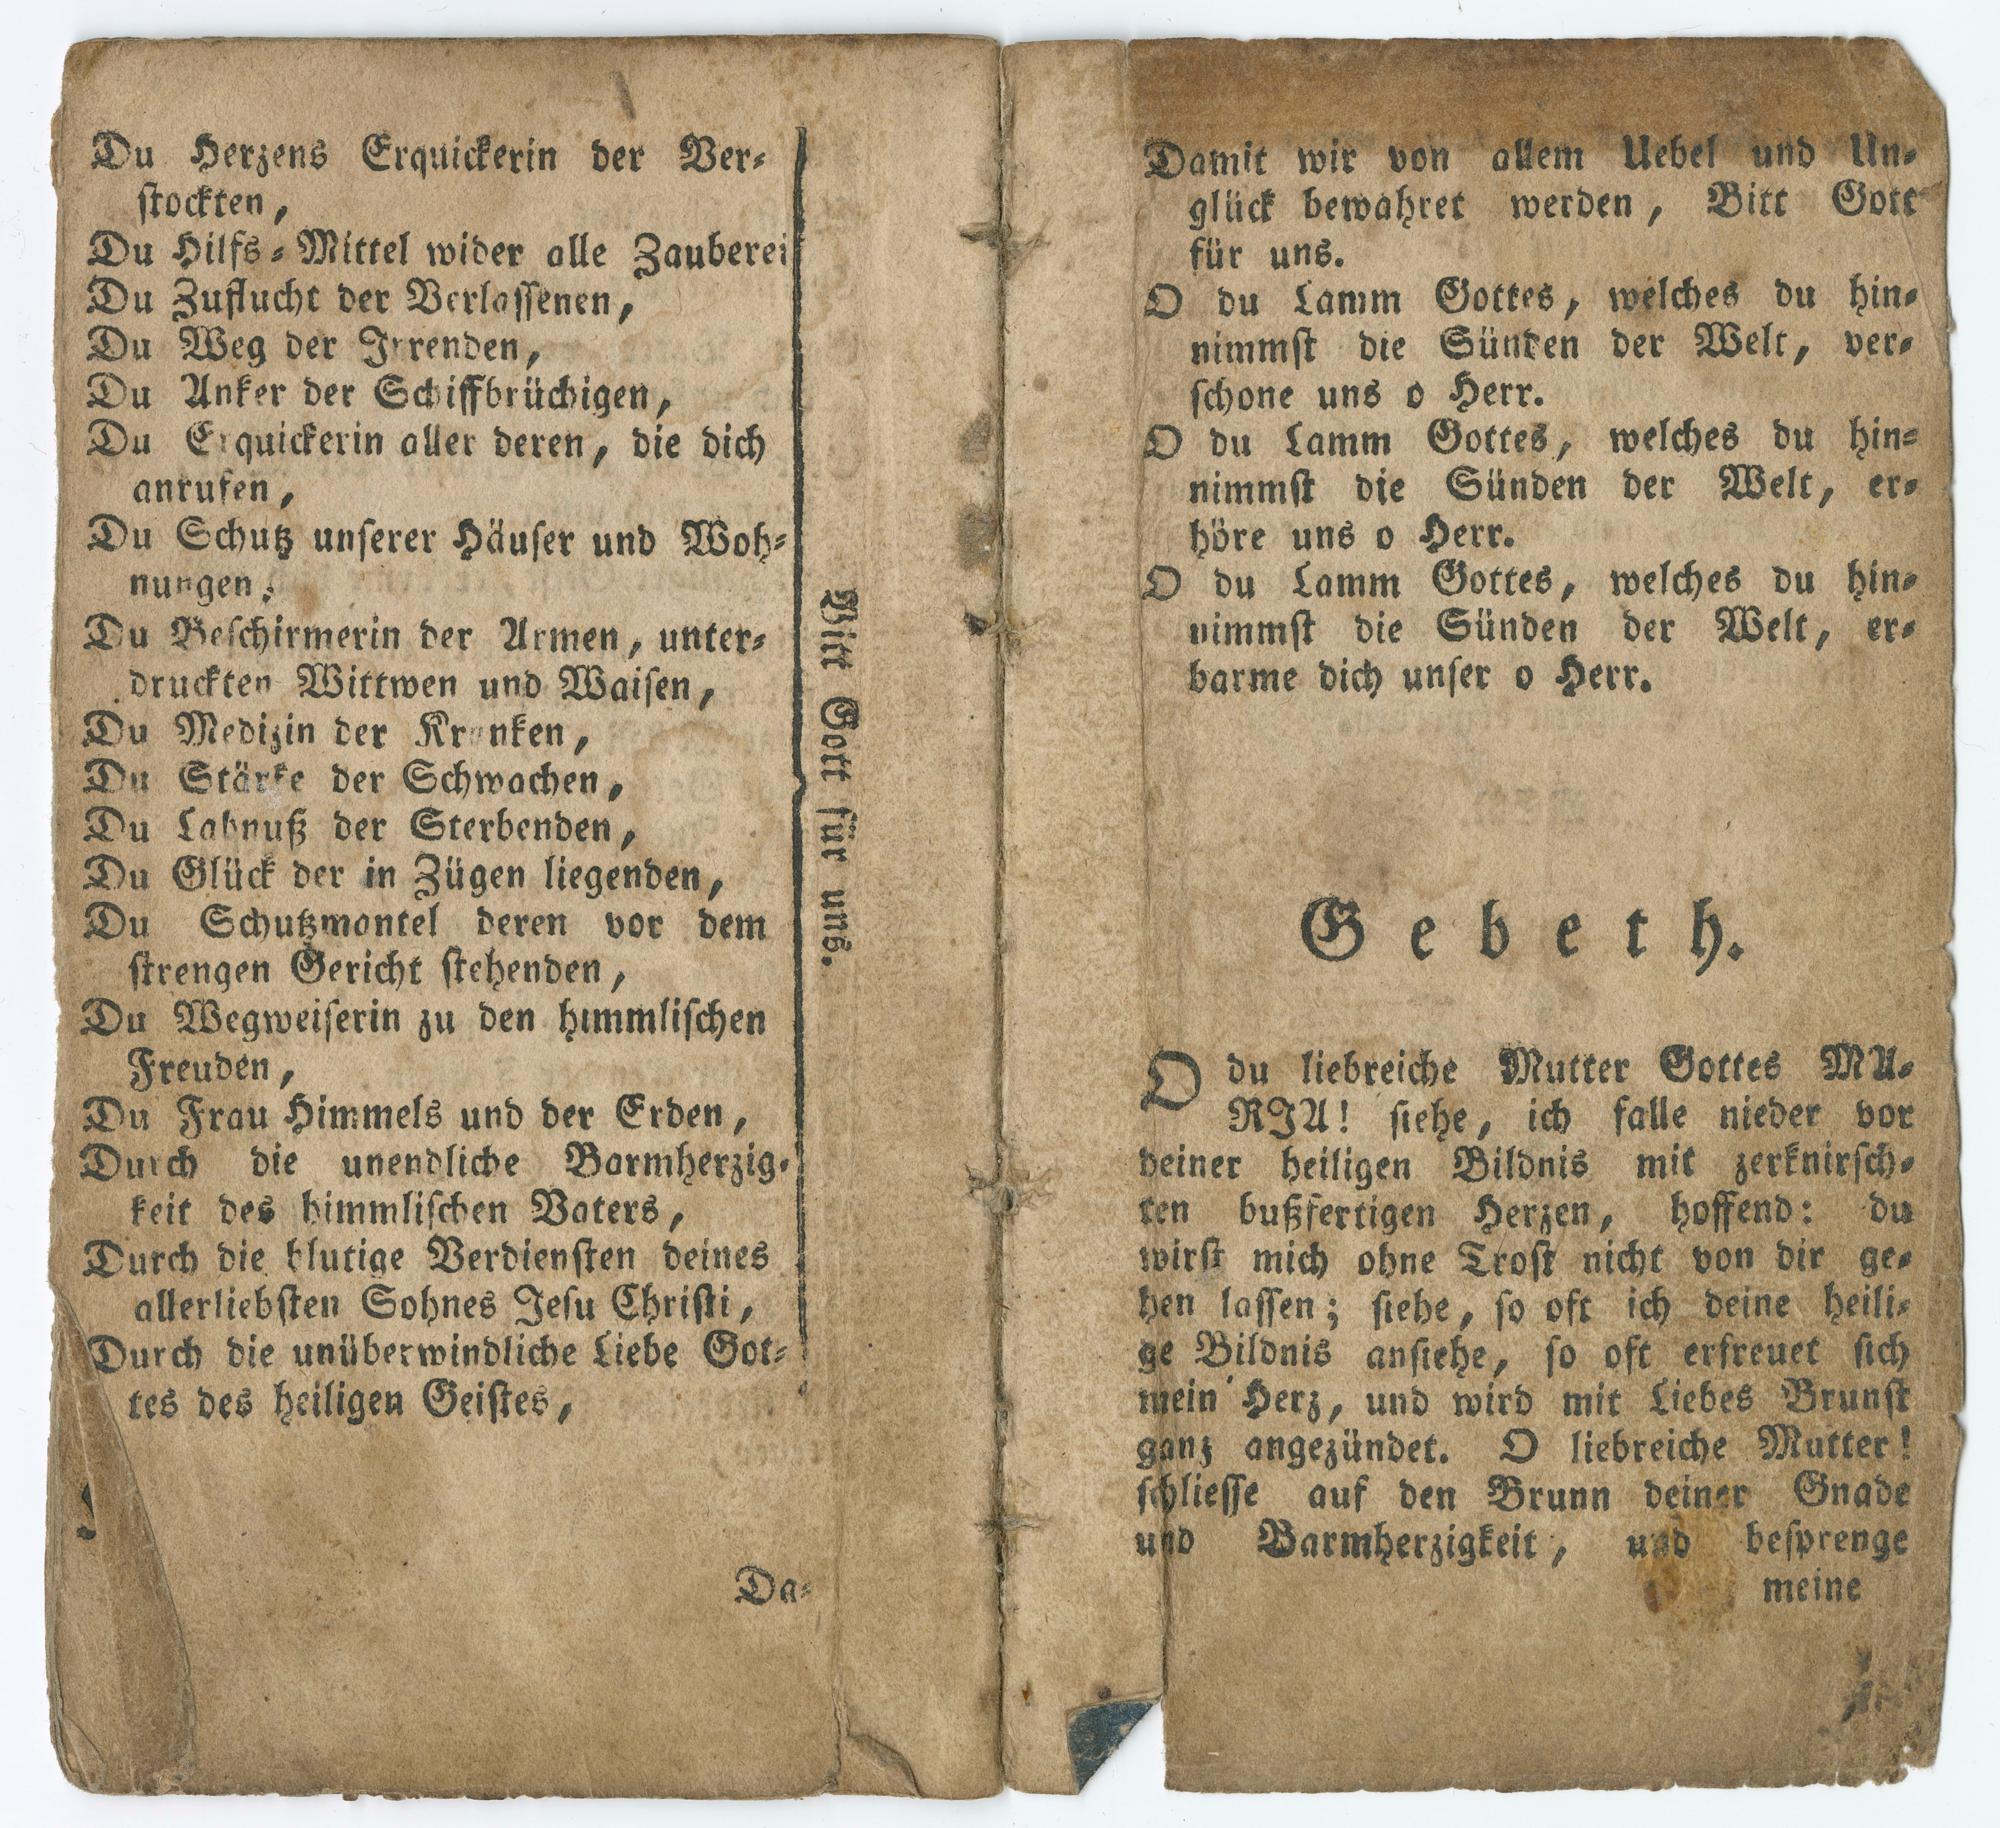 Du Herzens Erquickerin der Ver-
stockten,
Du Hilfs-Mittel wider alle Zauberei
Du Zuflucht der Verlassenen,
Du Weg der Irrenden,
Du Anker der Schiffbrüchigen,
Du Erquickerin aller deren, die dich
anrufen,
Du Schutz unserer Häuser und Woh-
nungen,
Du Beschirmerin der Armen, unter-
druckten Wittwen und Waisen,
Du Medizin der Kranken,
Du Stärke der Schwachen,
Du Labnuß der Sterbenden,
Du Glück der in Zügen liegenden,
Du Schutzmantel deren vor dem
strengen Gericht stehenden,
Du Wegweiserin zu den himmlischen
Freuden,
Du Frau Himmels und der Erden,
Durch die unendliche Barmherzig-
keit des himmlischen Vaters,
Durch die blutige Verdiensten deines
allerliebsten Sohnes Jesu Christi,
Durch die unüberwindliche Liebe Got-
tes des heiligen Geistes,
Bitt Gott für uns.
Da-
Damit wir von allem Uebel und Un-
glück bewahret werden, Bitt Gott
für uns.
O du Lamm Gottes, welches du hin-
nimmst die Sünden der Welt, ver-
schone uns o Herr.
O du Lamm Gottes, welches du hin-
nimmst die Sünden der Welt, er-
höre uns o Herr.
O du Lamm Gottes, welches du hin-
nimmst die Sünden der Welt, er-
barme dich unser o Herr.
Gebeth.
O du liebreiche Mutter Gottes MA-
RIA! siehe, ich falle nieder vor
deiner heiligen Bildnis mit zerknirsch-
ten bußfertigen Herzen, hoffend: du
wirst mich ohne Trost nicht von dir ge-
hen lassen; siehe, so oft ich deine heili-
ge Bildnis ansiehe, so oft erfreuet sich
mein Herz, und wird mit Liebes Brunst
ganz angezündet. O liebreiche Mutter!
schliesse auf den Brunn deiner Gnade
und Barmherzigkeit, und besprenge
meine